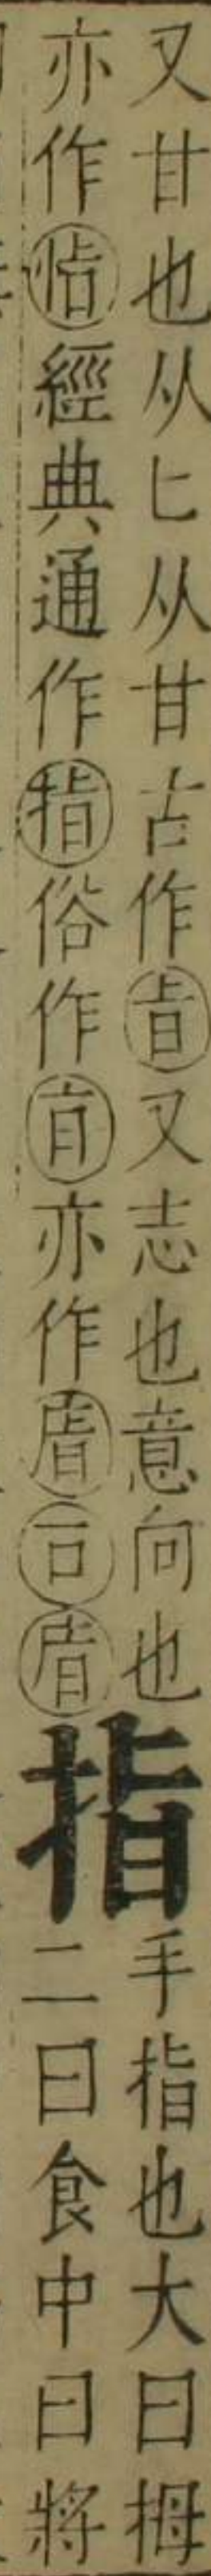 又甘也从匕从甘古作㫖又志也意向也
亦作㤐經典通作指俗作亯亦作
指
手指也大曰拇
二曰食中曰將